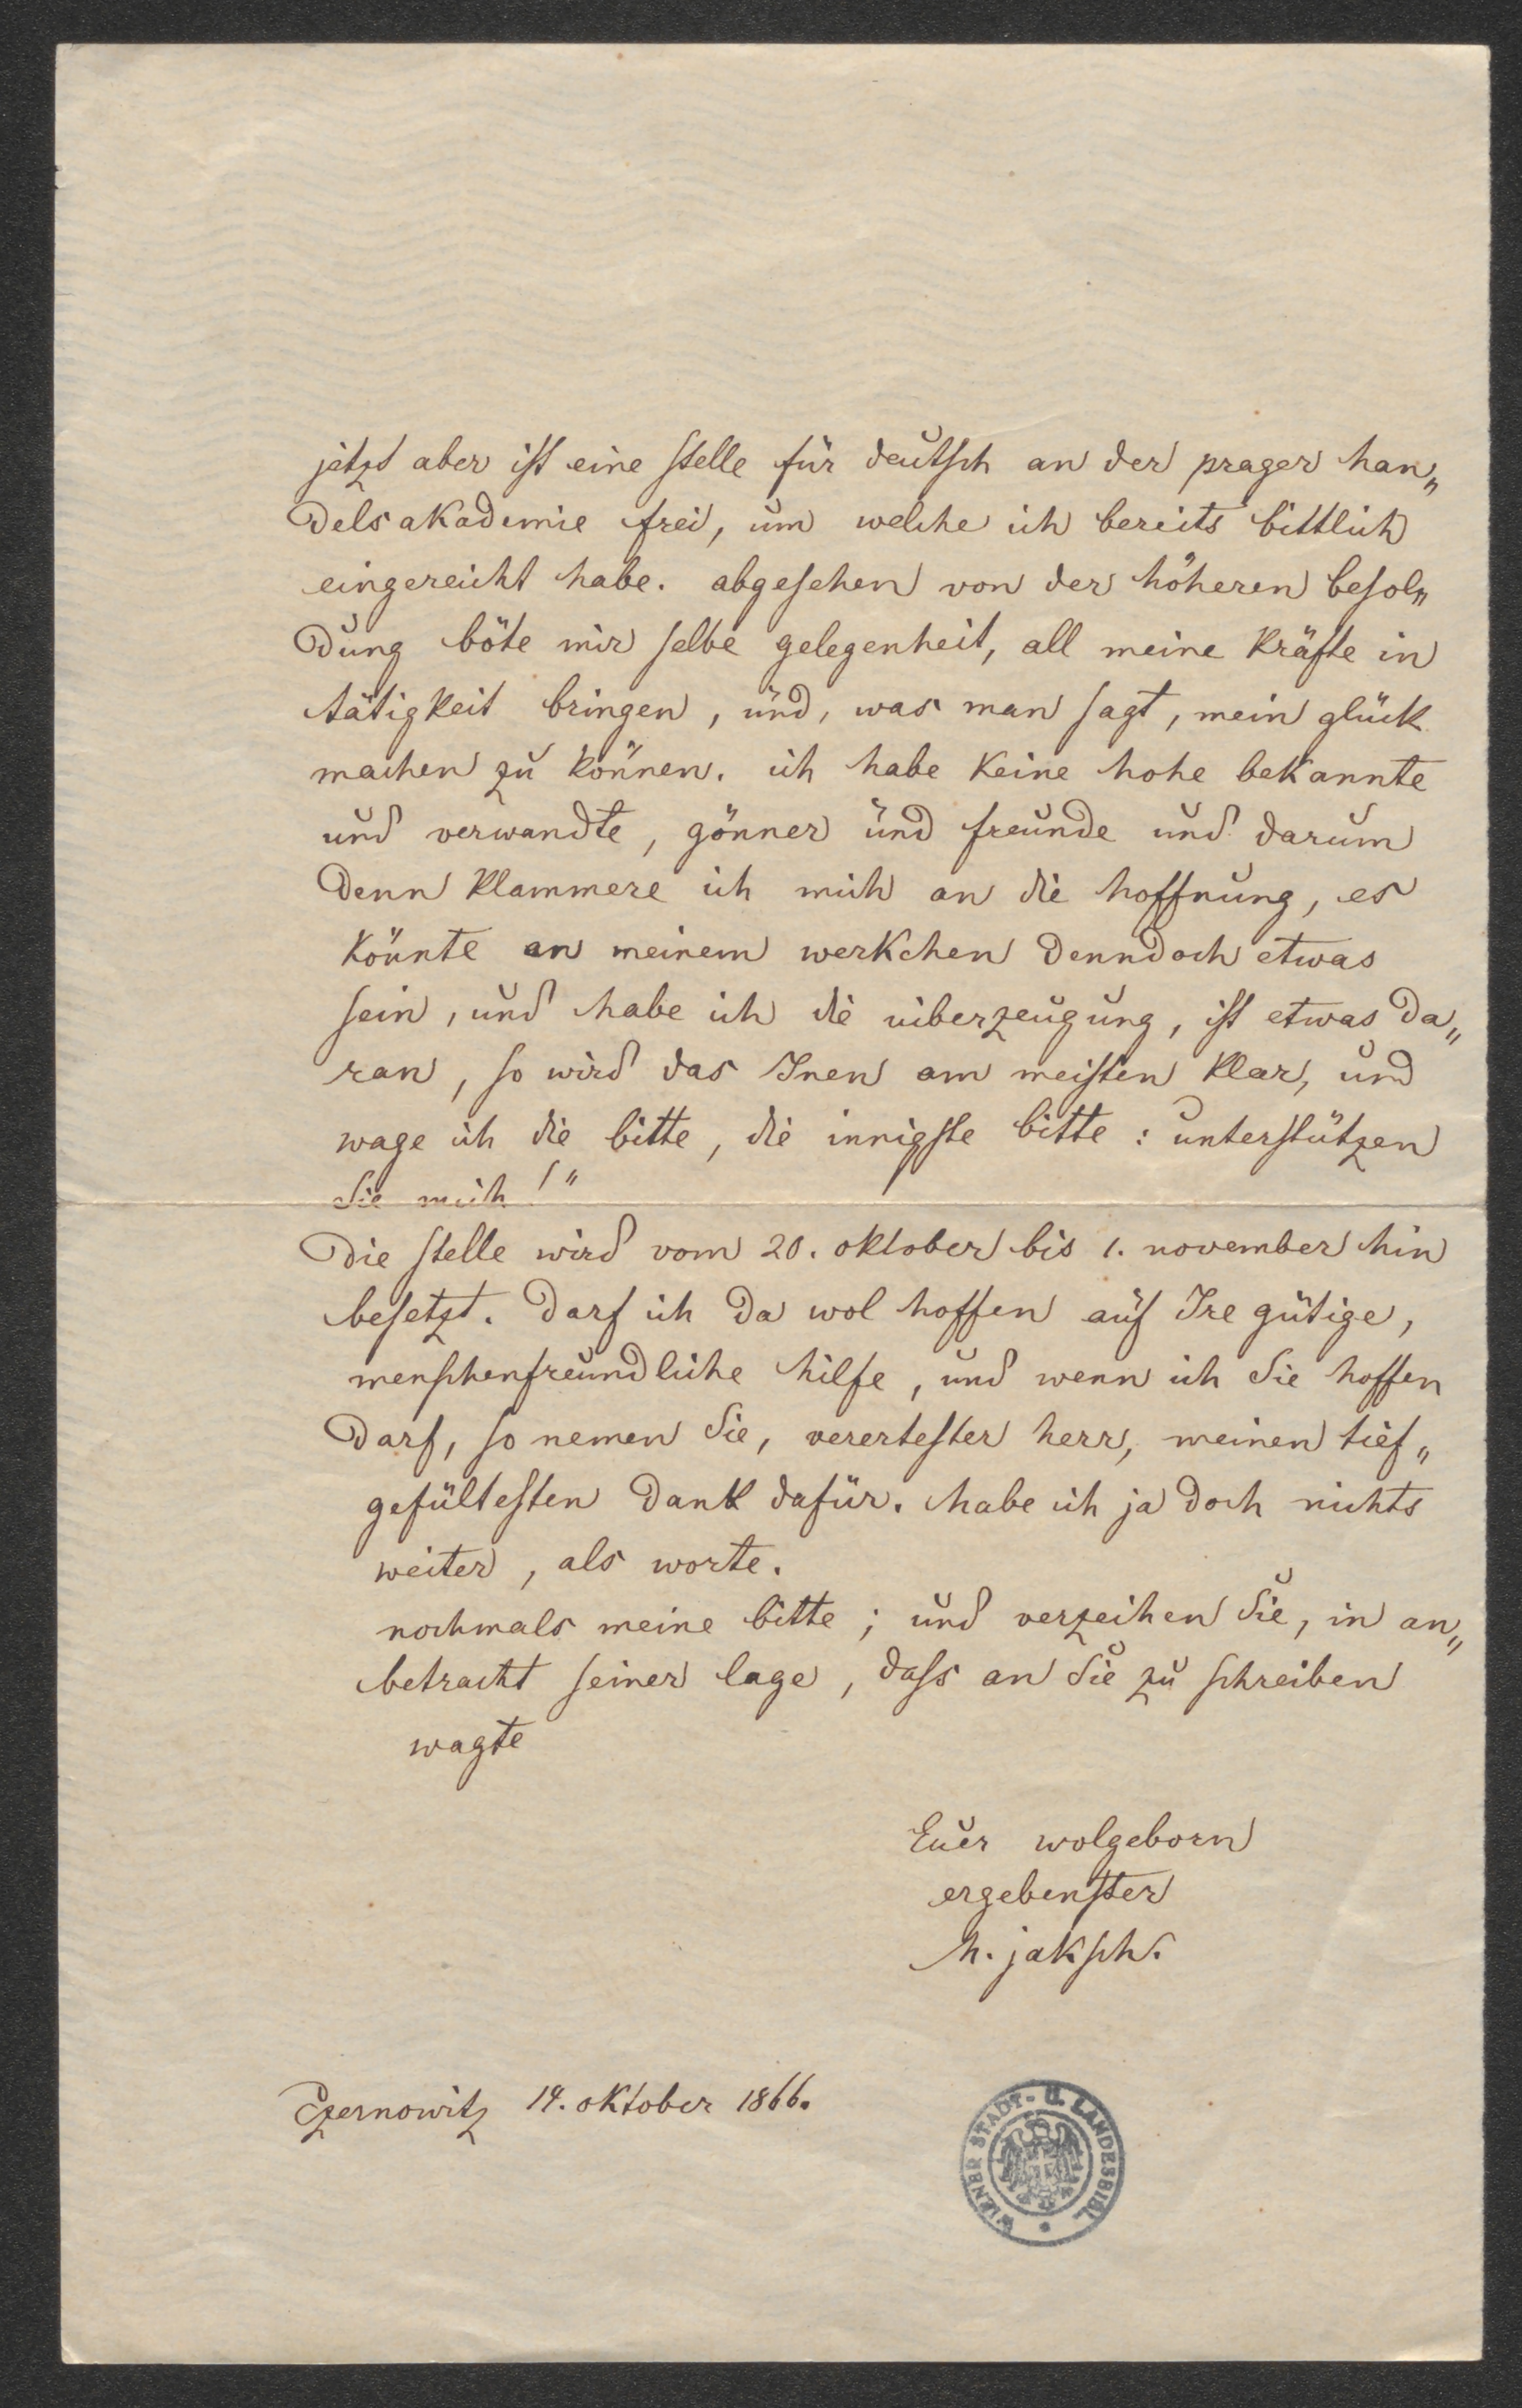 jetzt aber ist eine stelle für deutsch an der prager han„
delsakademie frei, um welche ich bereits bittlich
eingereicht habe. abgesehen von der höheren besol„
dung böte mir selbe gelegenheit, all meine kräfte in
tätigkeit bringen, und, was man sagt, mein glück
machen zu können. ich habe keine hohe bekannte
und verwandte, gönner und freunde und darum
denn klammere ich mich an die hoffnung, es
könnte an meinem werkchen denndoch etwas
sein, und habe ich die uiberzeugung, ist etwas da„
ran, so wird das Inen am meisten klar, und
wage ich die bitte, die innigste bitte: unterstützen
Sie mich!"
Die stelle wird vom 20. oktober bis 1. november hin
besetzt. Darf ich da wol hoffen auf Ire gütige,
menschenfreundliche hilfe, und wenn ich Sie hoffen
darf, so nemen Sie, verertester herr, meinen tief„
gefültesten dank dafür. habe ich ja doch nichts
weiter, als worte.
nochmals meine bitte; und verzeihen Sie, in an„
betracht seiner lage, dass an Sie zu schreiben
wagte
Euer wolgeborn
ergebenster
h. jaksch.
Czernowitz 14. oktober 1866.
WIENER STADT- U. LANDESBIBL.